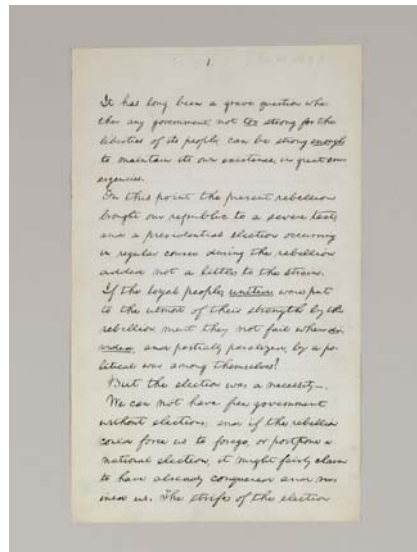 1.
It has long been a grave question whe
ther any government, not too strong for the
liberties of its people, can be strong enough
to maintain its own existence, in great em
ergencies.
On this point the present rebellion
brought our republic to a severe test;
and a presidential election occurring
in regular course during the rebellion
added not a little to the strain.
If the loyal people, united, were put
to the utmost of their strength by the
rebellion, must they not fail when di
vided, and partially paralized, by a po
litical war among themselves?
But the election was a necessity—.
We can not have free government
without elections; and if the rebellion
could force us to forego, or postpone a
national election, it might fairly claim
to have already conquered and ru
ined us. The strife of the election